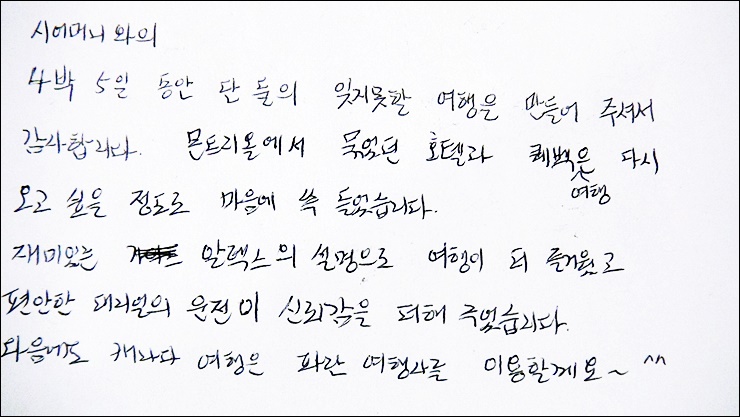 시어머니와의
4박 5일 동안 단 둘의 잊지못할 여행을 만들어 주셔서
감사합니다. 몬트리올에서 묵었던 호텔과 퀘벡은 다시
여행
오고 싶을 정도로 마음에 쏙 들었습니다.
재미있는 알렉스의 설명으로 여행이 더 즐거웠고
편안한 대리얼의 운전이 신뢰감을 더해 주었습니다.
다음에도 캐나다 여행은 파란 여행사를 이용할께요~ ^^